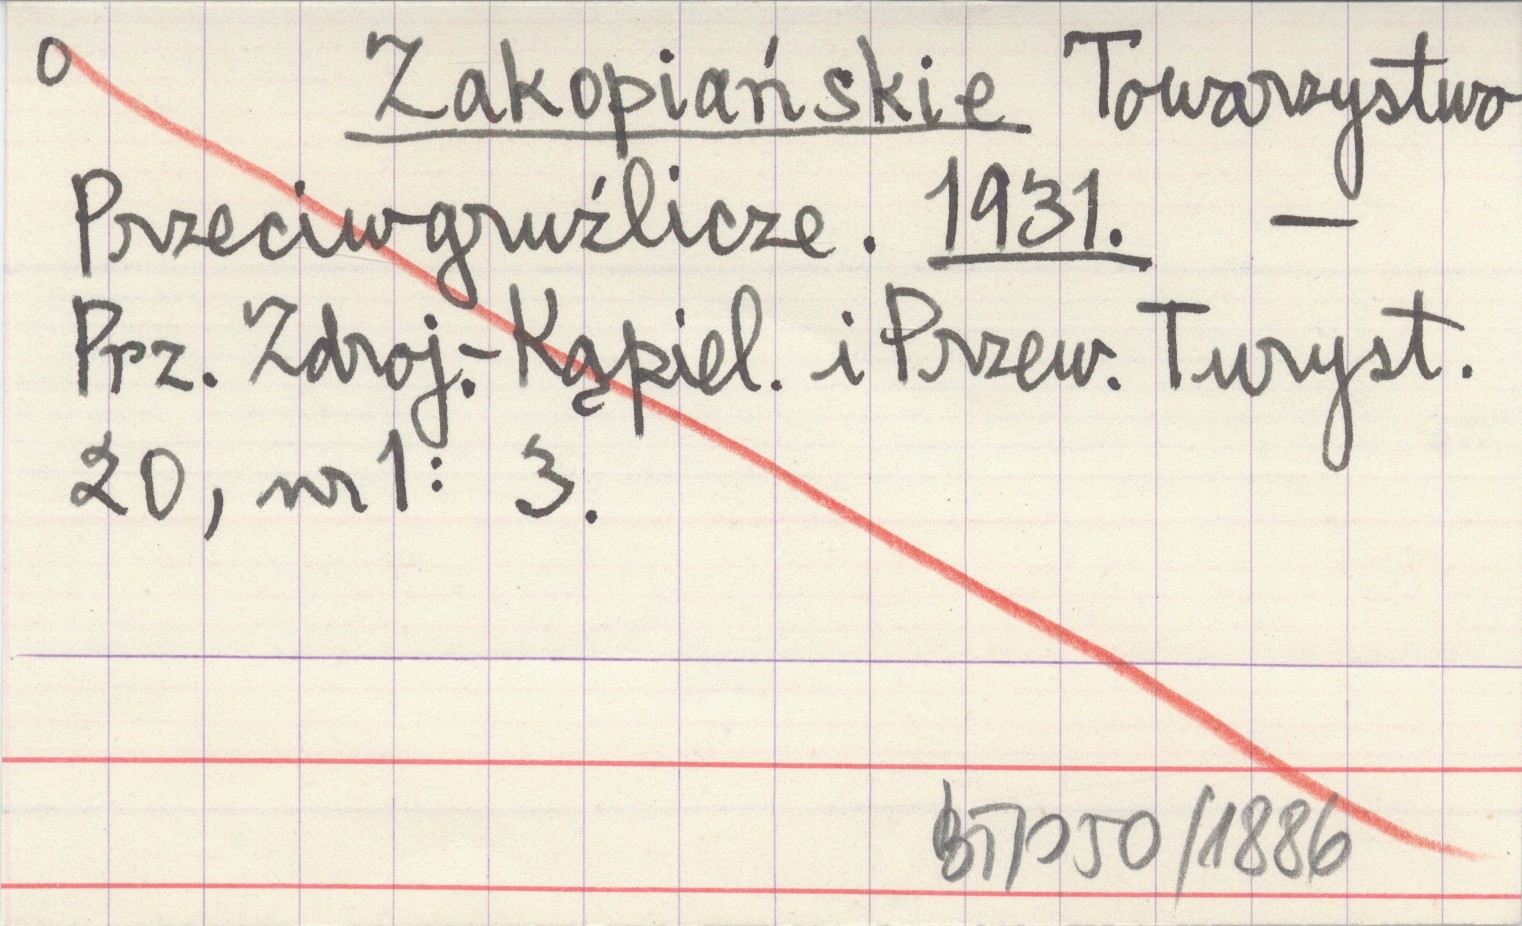 O Zakopiańskie Towarzystwo
Przeciwgruźlicze. 1931. —
Prz. Zdroj.-Kąpiel. i Przew. Turyst.
20, nr 1: 3.
/1886